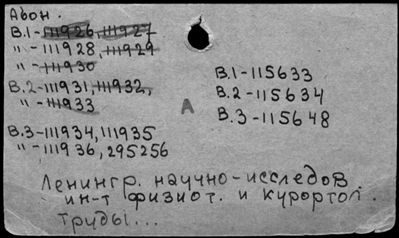 Абон.
В.1-111926, 111927
"-111928, 111929
"-111930
В.2-111931, 111932,
"-111933
В.3-111934, 111935
"-111936, 295256
А
В.1-115633
В.2-115634
В.3-115648
Ленингр. научно-исследов
ин-т физиот. и курортол.
труды...